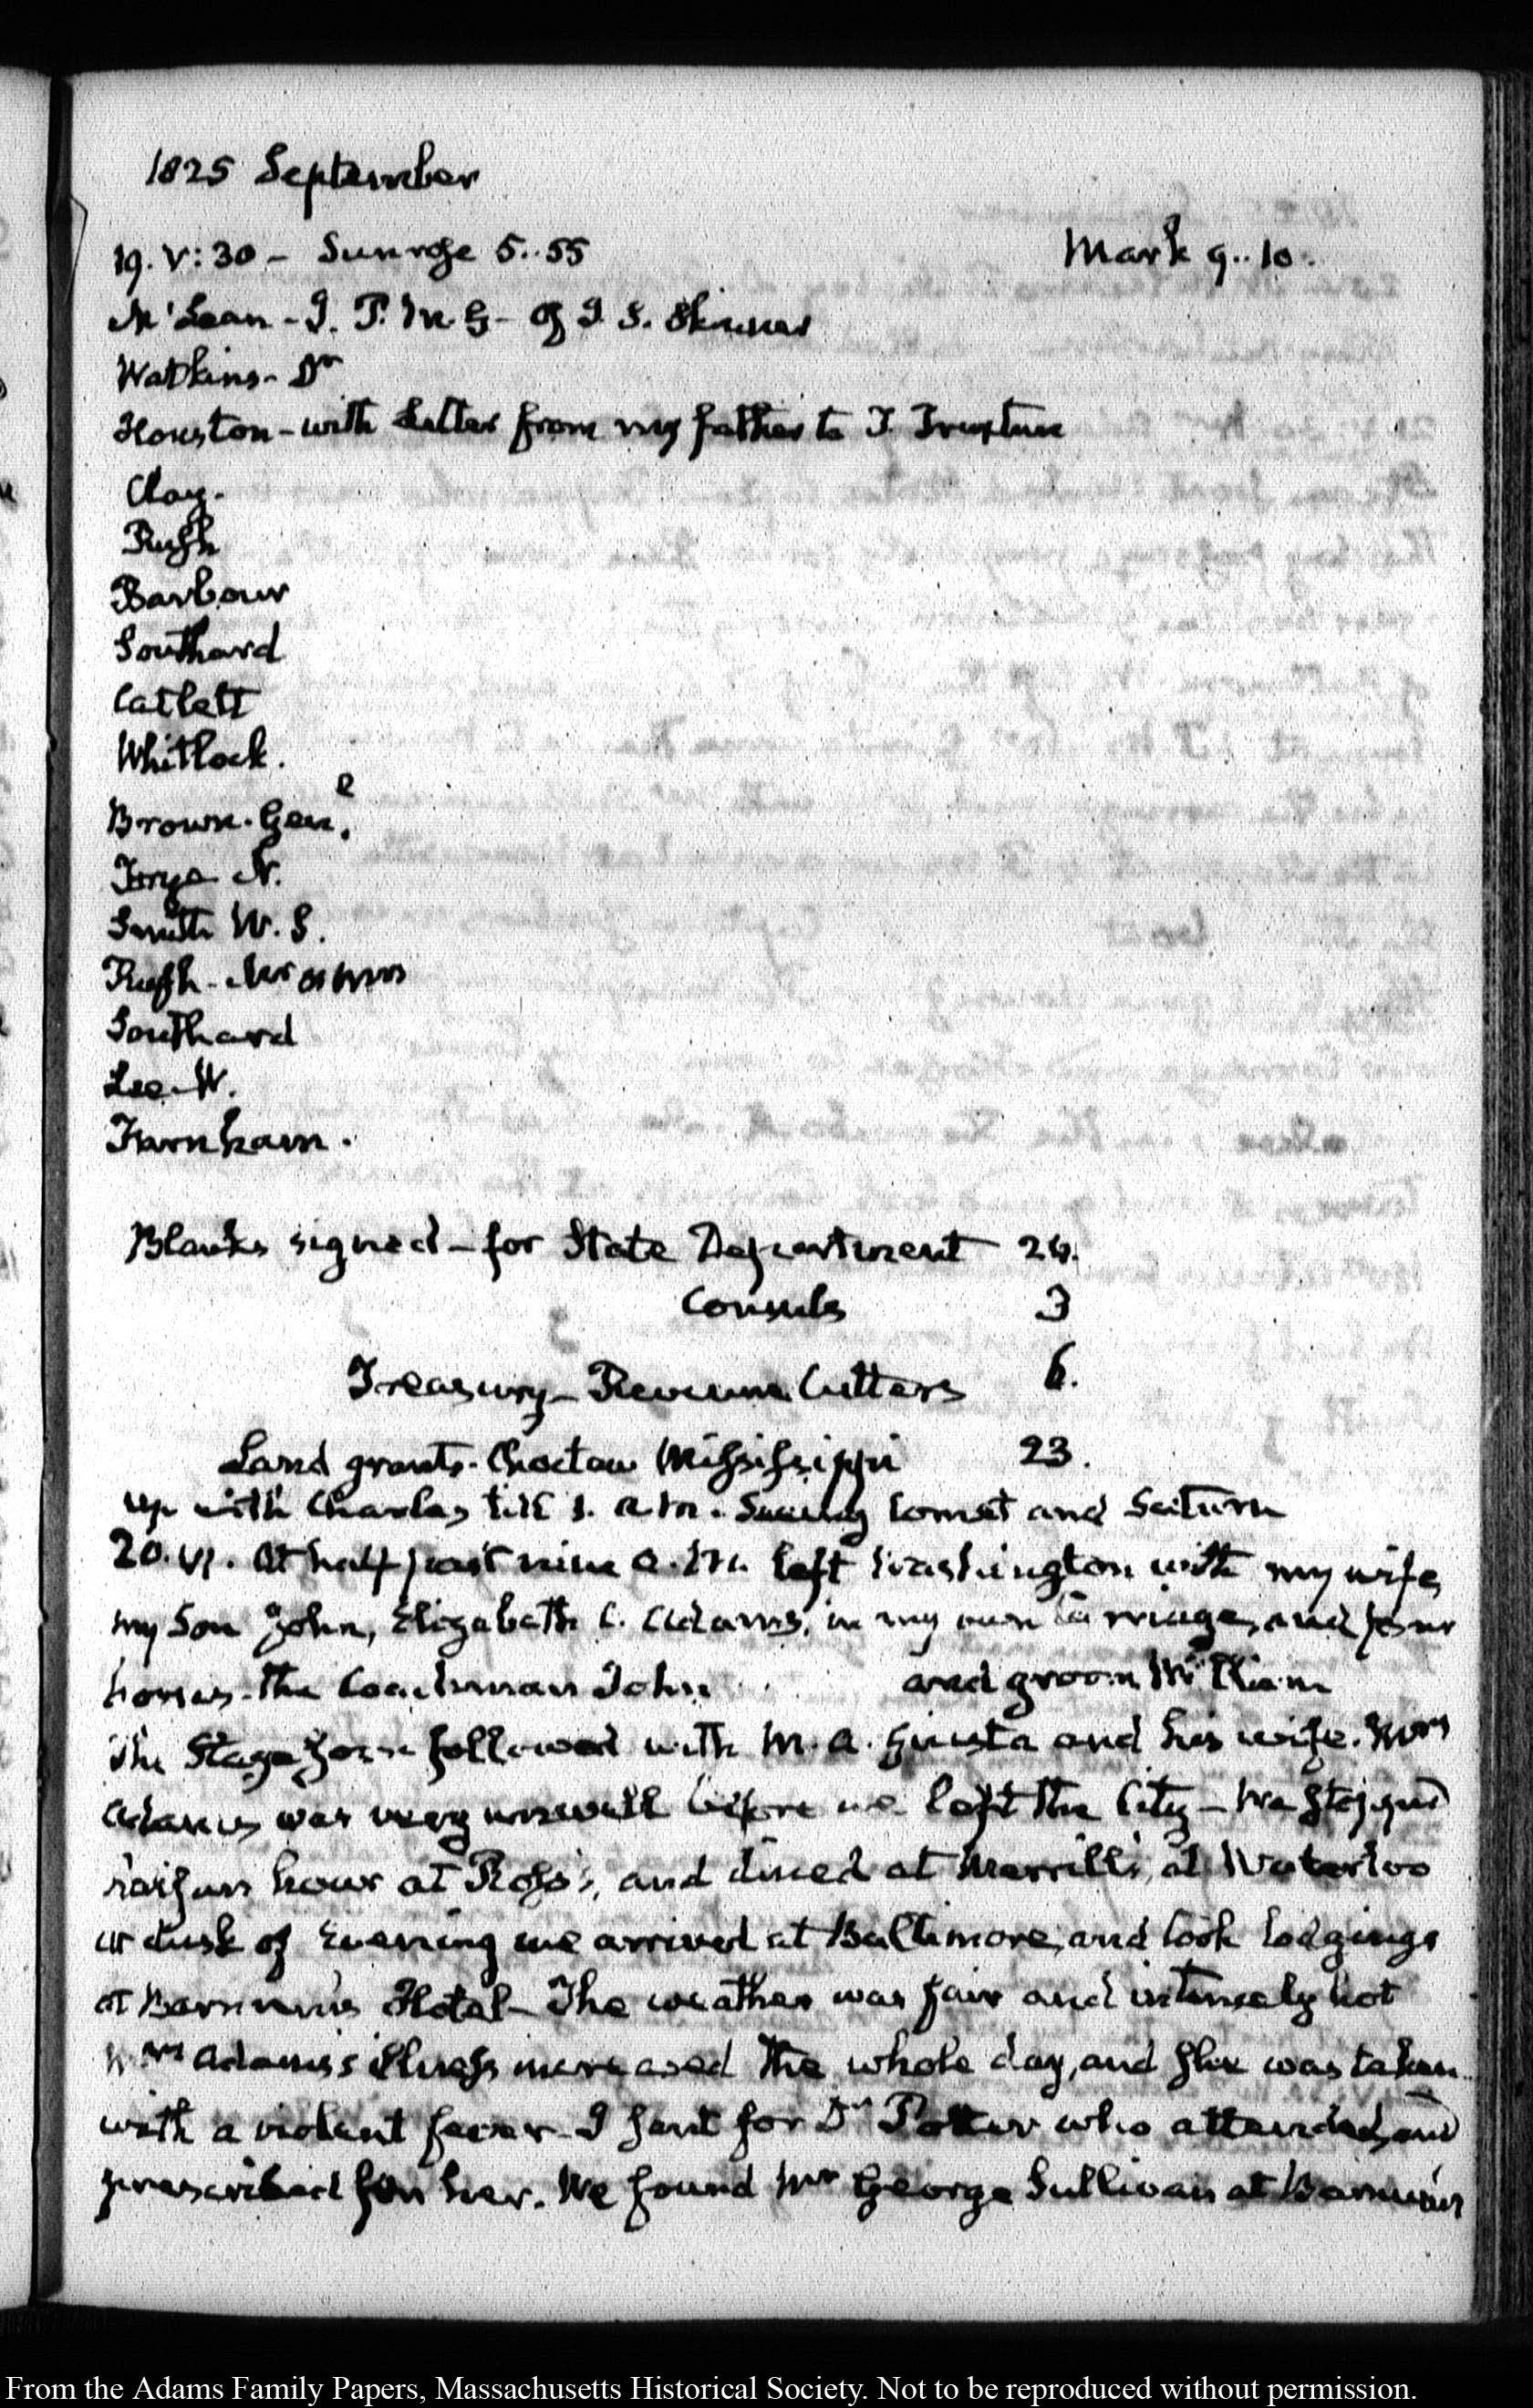 1825 September
19. V: 30 – Sunrise 5..55 Mark 9..10.
McLean – J. P. M. G – of J. S. Skinner
Watkins – Dr
Houston – with Letter from my father to T. Truxtun
Clay.
Rush
Barbour
Southard
Catlett
Whitlock.
Brown. Genl.
Frye N.
Smith W. S.
Rush – Mr
Southard
Lee – W.
Farnham.
Blanks signed – for State Department 24.
Consuls 3
Treasury – Revenue Cutters 6.
Land grants. Choctaw Mississippi 23.
up with Charles till 1. A.M. Seeing Comet and Saturn
20. VI. At half past nine A.M. left Washington with my wife,
my Son John, Elizabeth C. Adams, in my own Carriage, and four
horses. The Coachman John and groom William
The Stage followed with M. A. Giusta and his wife. Mrs
Adams was very unwell before we left the City – We stopped
half an hour at Ross's, and dined at Merrill's, at Waterloo
at dusk of Evening we arrived at Baltimore, and took lodgings
at Barnum's Hotel – The weather was fair and intensely hot
Mrs Adams's illness increased the whole day, and she was taken
with a violent fever. I sent for Dr Potter who attended, and
prescribed for her. We found Mr George Sullivan at Barnum's
From the Adams Family Papers, Massachusetts Historical Society. Not to be reproduced without permission.